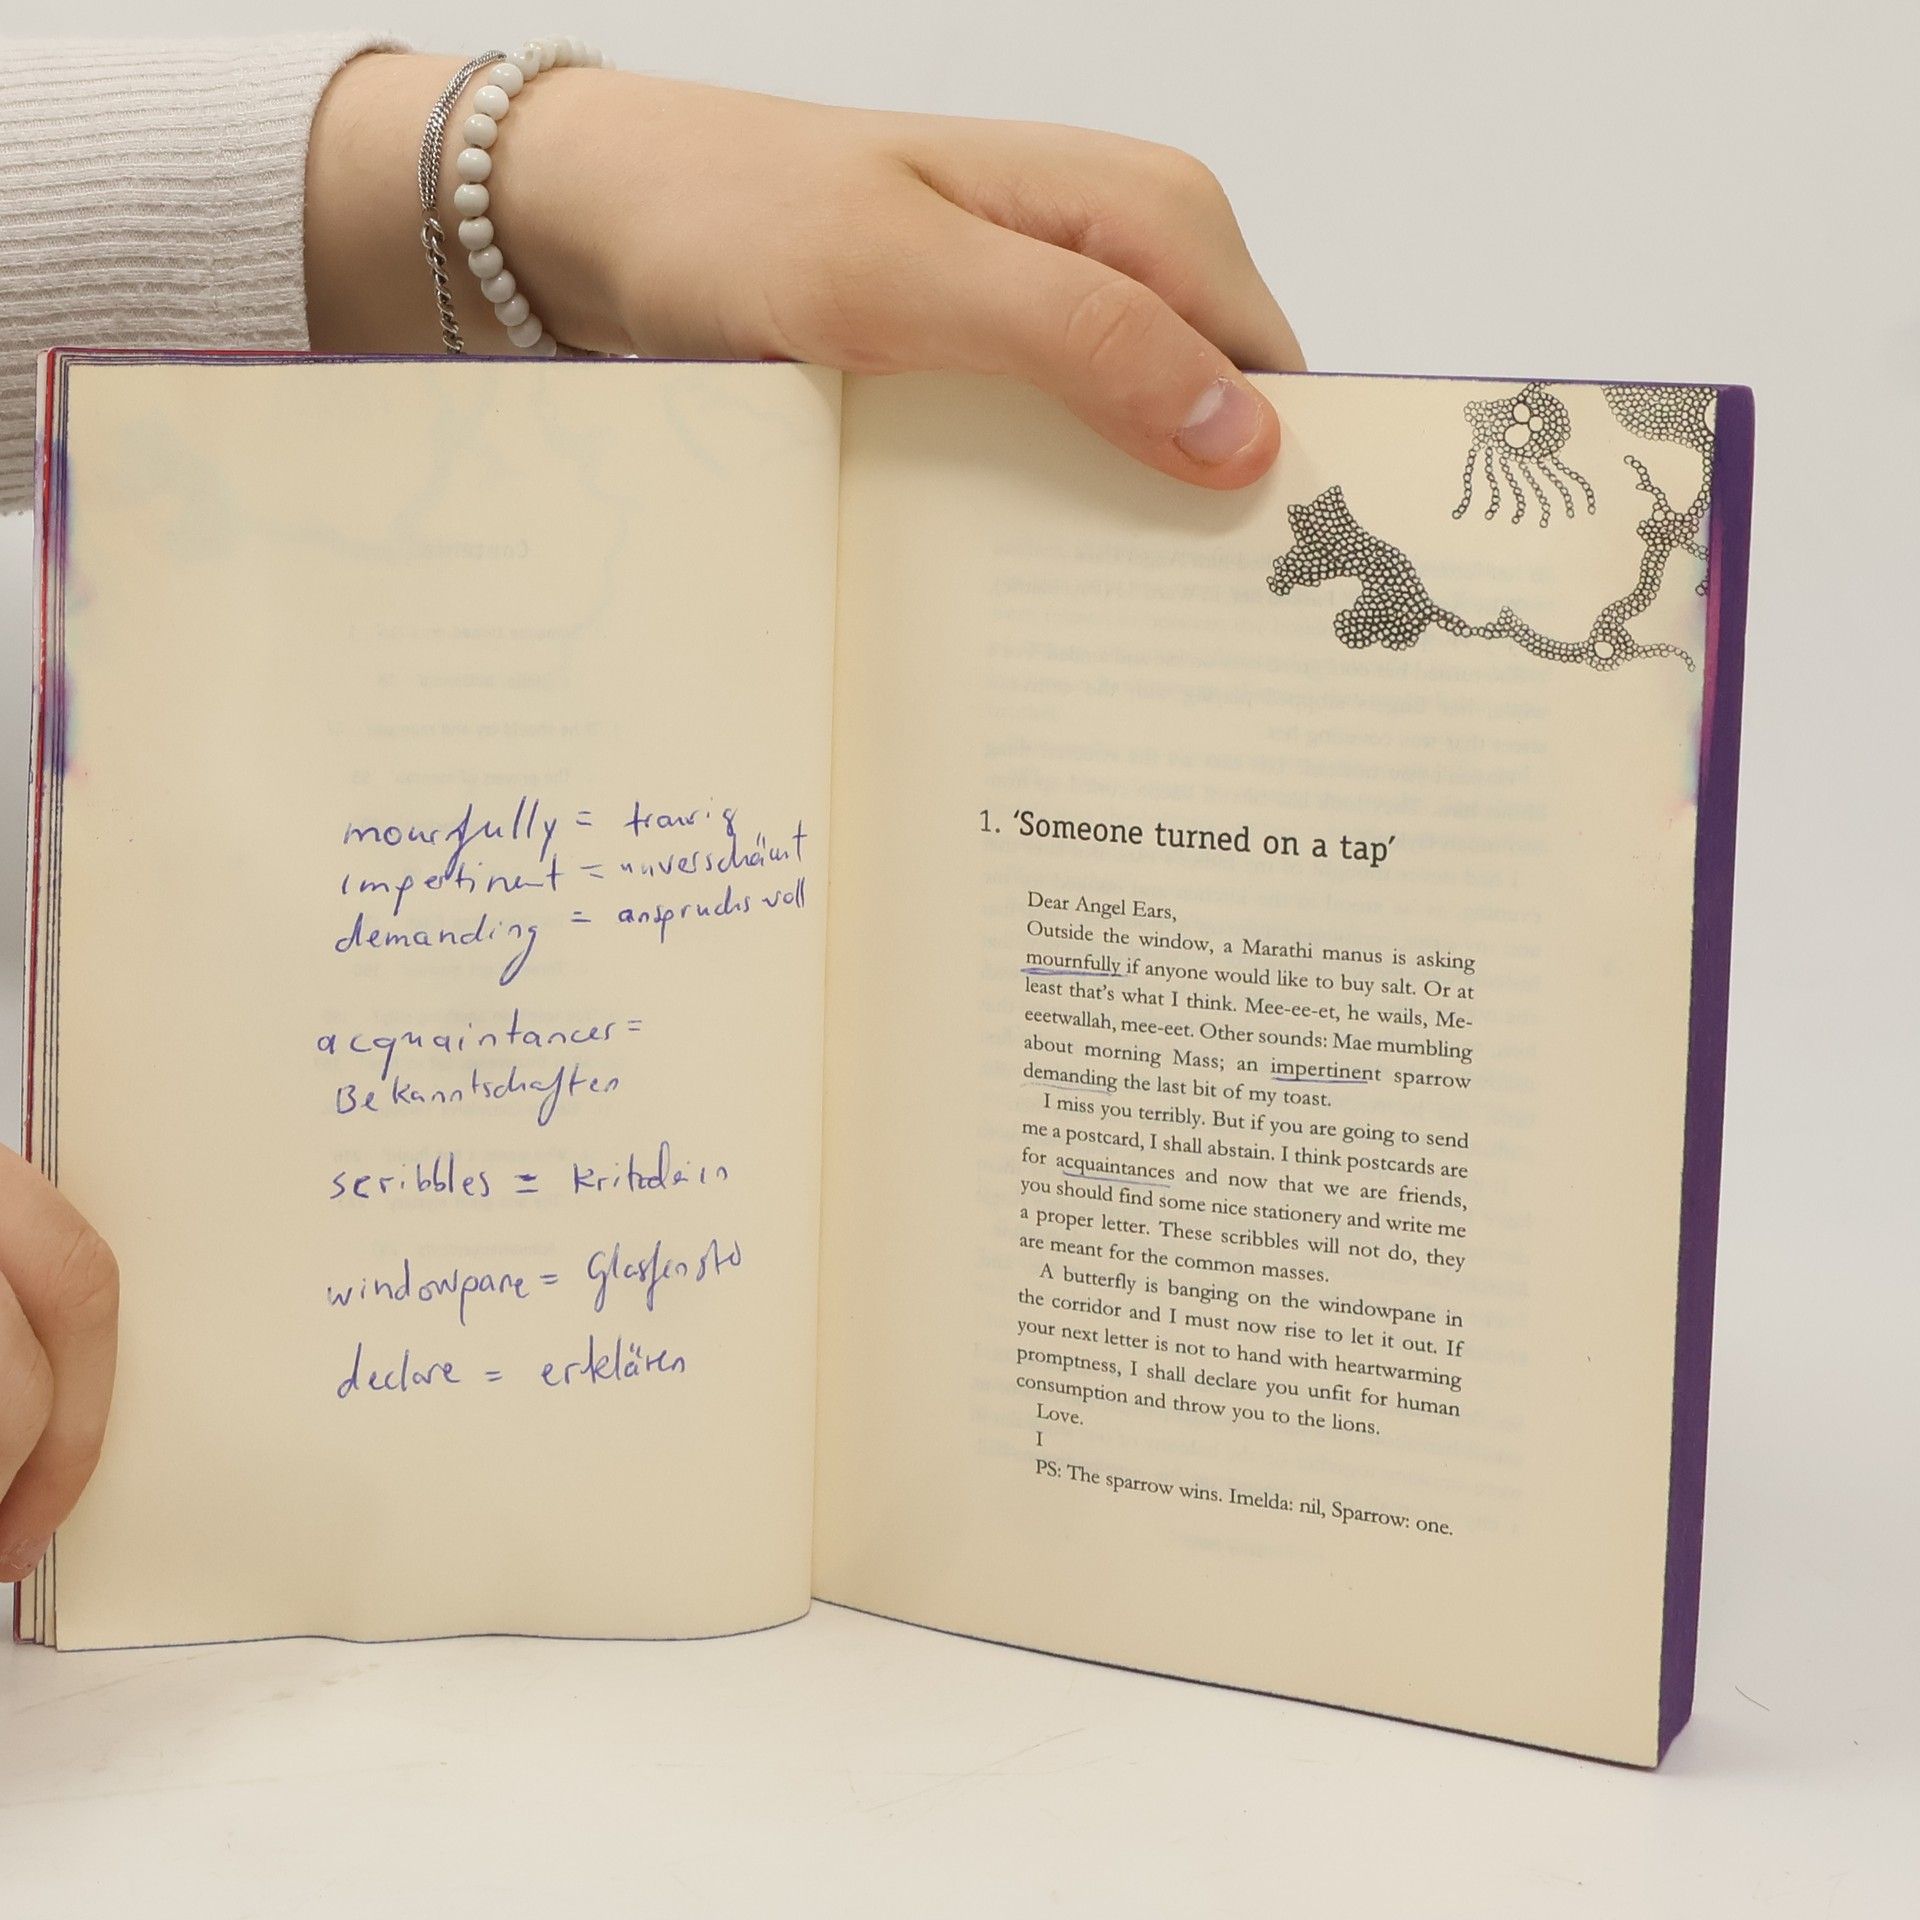 mournfully = traurig
impertinent = unverschämt
demanding = anspruchsvoll
acquaintances =
Bekanntschaften
scribbles = kritzelein
windowpane =
declare = erklären
1. ‘Someone turned on a tap’
Dear Angel Ears,
Outside the window, a Marathi manus is asking
mournfully if anyone would like to buy salt. Or at
least that’s what I think. Mee-ee-et, he wails, Me-
eeetwallah, mee-eet. Other sounds: Mae mumbling
about morning Mass; an impertinent sparrow
demanding the last bit of my toast.
I miss you terribly. But if you are going to send
me a postcard, I shall abstain. I think postcards are
for acquaintances and now that we are friends,
you should find some nice stationery and write me
a proper letter. These scribbles will not do, they
are meant for the common masses.
A butterfly is banging on the windowpane in
the corridor and I must now rise to let it out. If
your next letter is not to hand with heartwarming
promptness, I shall declare you unfit for human
consumption and throw you to the lions.
Love.
I
PS: The sparrow wins. Imelda: nil, Sparrow: one.